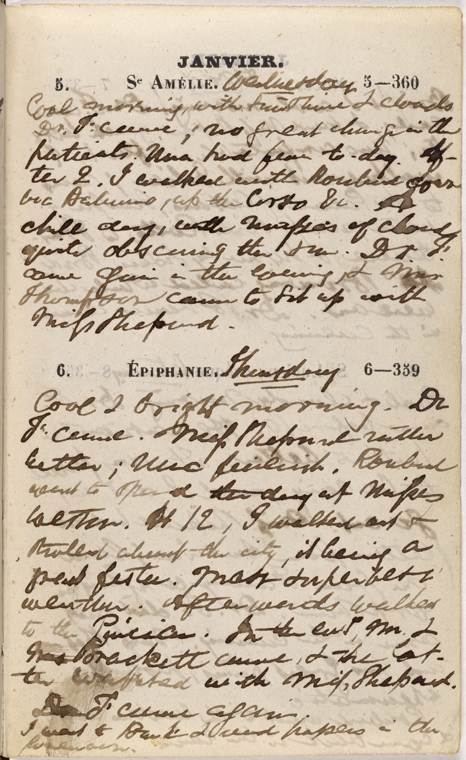 JANVIER.
5. Se AMÉLIE. Wednesday 5—360
Cool morning, with sunshine & clouds
Dr. F. came; no great change in the
patients. Una had fever to-day. Af-
ter 2, I walked with Rosebud down
via Babuino, up the Corso &c. A
chill day, with masses of clouds
quite obscuring the sun. Dr. F.
came again in the evening, & Mrs
Thompson came to sit up with
Miss Shepard.
6. ÉPIPHANIE. Thursday 6—359
Cool & bright morning. Dr
F. came. Miss Shepard rather
better; Una feverish. Rosebud
went to spend the day at Misses
At 12, I walked out &
strolled about the city, it being a
great festa. Most superbest
weather. Afterwards walked
to the Pincian. In the eveg, Mr. &
Mrs Brackett came, & the lat-
ter watched with Miss Shepard.
Dr F. came again
I went to Bank & read papers in the
forenoon.